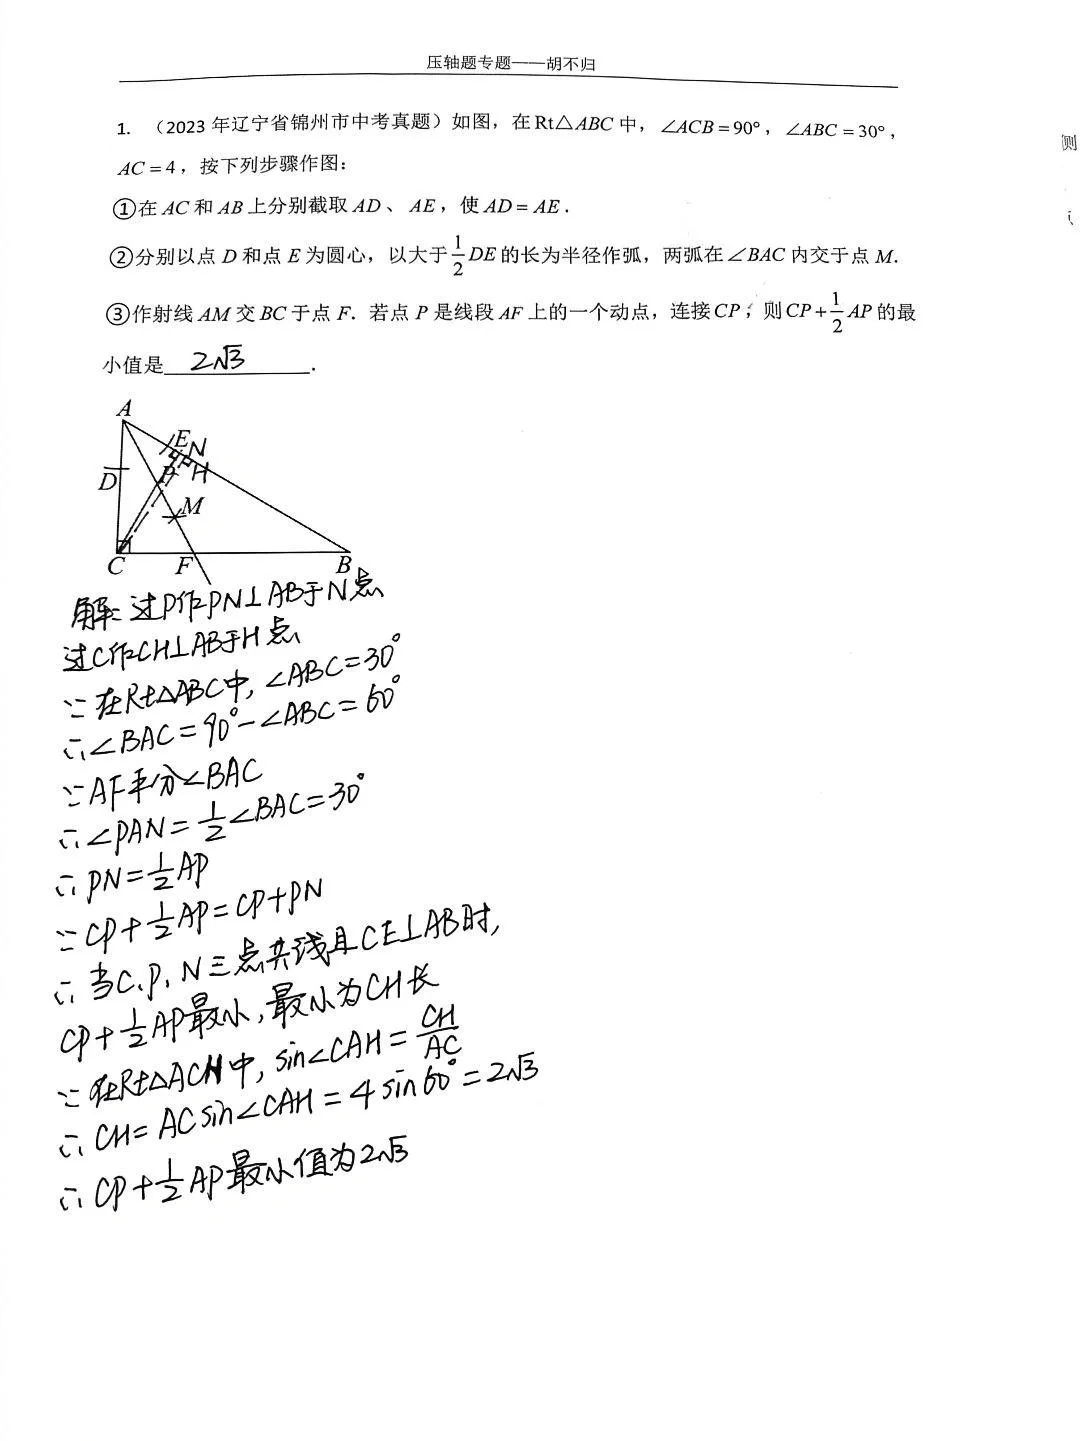 压轴题专题——胡不归
1. （2023 年辽宁省锦州市中考真题）如图，在 Rt△ABC 中，∠ACB=90°，∠ABC=30°，
AC=4，按下列步骤作图：
①在 AC 和 AB 上分别截取 AD、AE，使 AD=AE．
②分别以点 D 和点 E 为圆心，以大于 1/2 DE 的长为半径作弧，两弧在∠BAC 内交于点 M．
③作射线 AM 交 BC 于点 F．若点 P 是线段 AF 上的一个动点，连接 CP，则 CP+1/2 AP 的最
小值是 2√3 ．
则
A
E N
D P H
M
C F B
解：过P作PN⊥AB于N点
过C作CH⊥AB于H点
∵在Rt△ABC中，∠ABC=30°
∴∠BAC=90°-∠ABC=60°
∵AF平分∠BAC
∴∠PAN=1/2∠BAC=30°
∴PN=1/2AP
∵CP+1/2AP=CP+PN
∴当C、P、N三点共线且CE⊥AB时，
CP+1/2AP最小，最小为CH长
∵在Rt△ACH中，sin∠CAH=CH/AC
∴CH=ACsin∠CAH=4sin60°=2√3
∴CP+1/2AP最小值为2√3